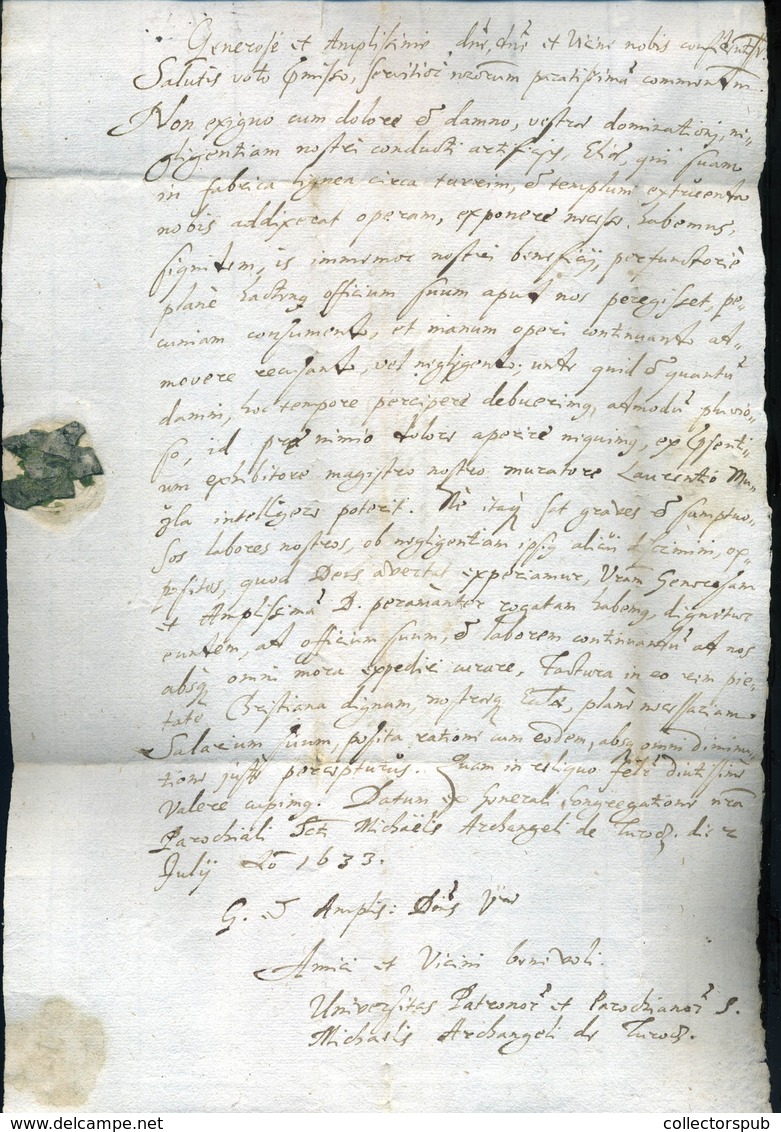 Generose et Amplissime dne, dne et Vicine nobis
Salutis voto pmisso, servitior nrorum paratissimã commendm.
Non exiguo cum dolore & damno, vestræ dominationj, ne-
gligentiam nostri conducti artificis, Eliæ, qui suam
in fabrica lignea circa turrim, & templum extruenda
nobis addixerat operam, exponere necesse habemus,
siquidem, is immemor nostri beneficij, perfunctoriè
planè hacteng officium suum aput nos peregisset, pe-
cuniam consumendo, et manum operi continuando ad-
movere recusando, vel negligendo. unde quid & quantũ
damni, hoc tempore percipere debuerimg, admodũ pluvio-
so, id præ nimio dolore aperire nequimg, ex psenti-
um exhibitore magistro nostro muratore Laurentio Mu-
gla intelligere poterit. Ne itaq sat graves & sumptuo-
sos labores nostros, ob negligentiam ipsig alicui discrimini, ex-
positos, quod Deus avertat experiamur, Vram Generosam
et Amplissimã D. peramanter rogatam habemg, dignetur
eundem, ad officium suum, & laborem continuandũ ad nos
absq omni mora expedire curare, factura in eo rem pie-
tate Christiana dignum, nostræq planè necessariam.
Salarium suum, posita ratione cum eodem, absq omni diminu-
tione juste percepturus. Quam in reliquo felr diutissime
valere cupimg. Datum ex Generali Congregatione nra
Parochiali Scti Michaëlis Archangeli de Turocz. die 2
Julij Ao 1633.
G. & Amplis: Dnis Vræ
Amici et Vicini benevoli.
Universitas Patronor et Parochianor S.
Michaelis Archangeli de Turocz.
collectorspub